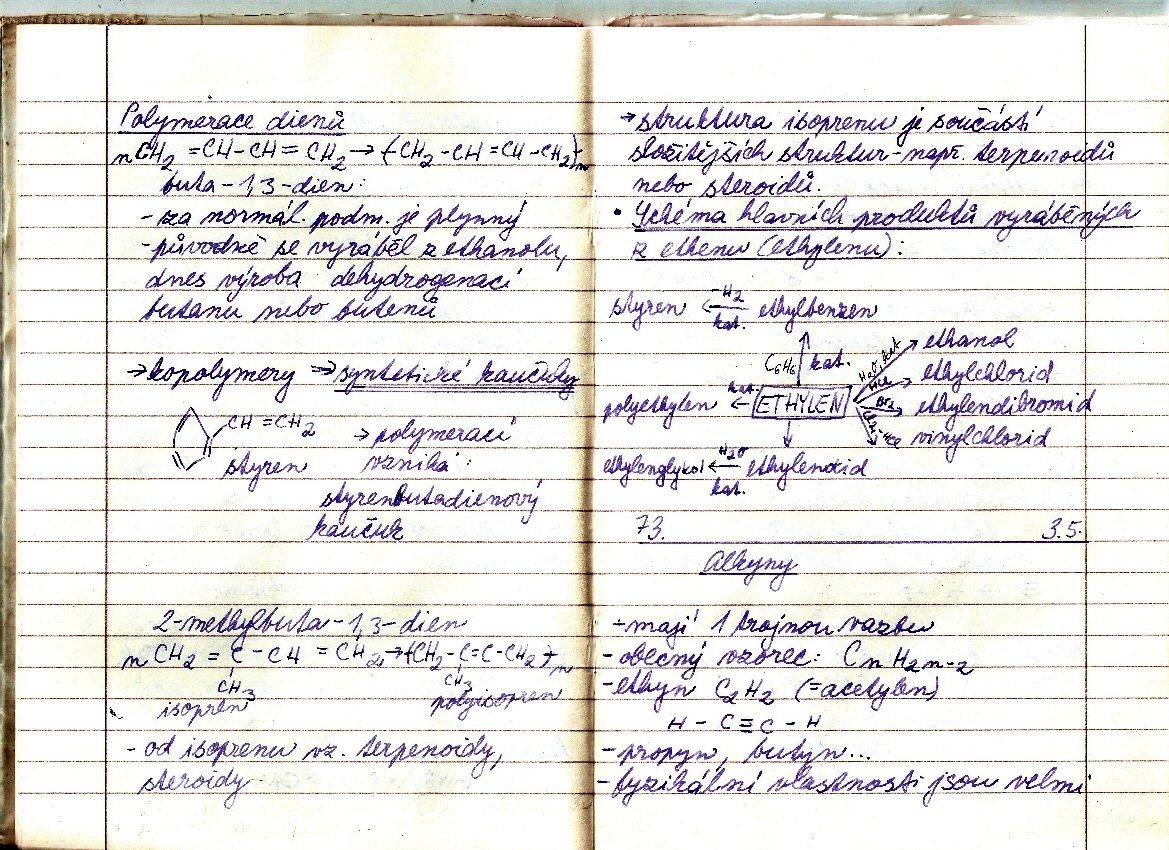 Polymerace dienů
nCH2 =CH-CH= CH2 → (-CH2 -CH=CH-CH2)-n
buta-1,3-dien:
-za normál. podm. je plynný
-původně se vyráběl z ethanolu,
dnes výroba dehydrogenací
butanu nebo butenů
→kopolymery ⇒ syntetické kaučuky
CH=CH2
styren
→ polymerací
vzniká:
styrenbutadienový
kaučuk
2-methylbuta-1,3-dien
n CH2 = C - CH = CH2 → (-CH2-C=C-CH2)-n
CH3
CH3
isopren
polyisopren
- od isoprenu vz. terpenoidy,
steroidy
→struktura isoprenu je součástí
složitějších struktur-např. terpenoidů
nebo steroidů.
• Schéma hlavních produktů vyráběných
z ethenu (ethylenu):
styren ← -H2 kat. ethylbenzen
C6H6 kat.
H2O, kat. ethanol
HCl ethylchlorid
polyethylen ← kat. ETHYLEN
Br2 ethylendibromid
vinylchlorid
ethylenglykol ← H2O kat. ethylenoxid
73. 3.5.
Alkyny
-mají 1 trojnou vazbu
-obecný vzorec: CnH2n-2
-ethyn C2H2 (=acetylen)
H - C≡C - H
-propyn, butyn...
-fyzikální vlastnosti jsou velmi